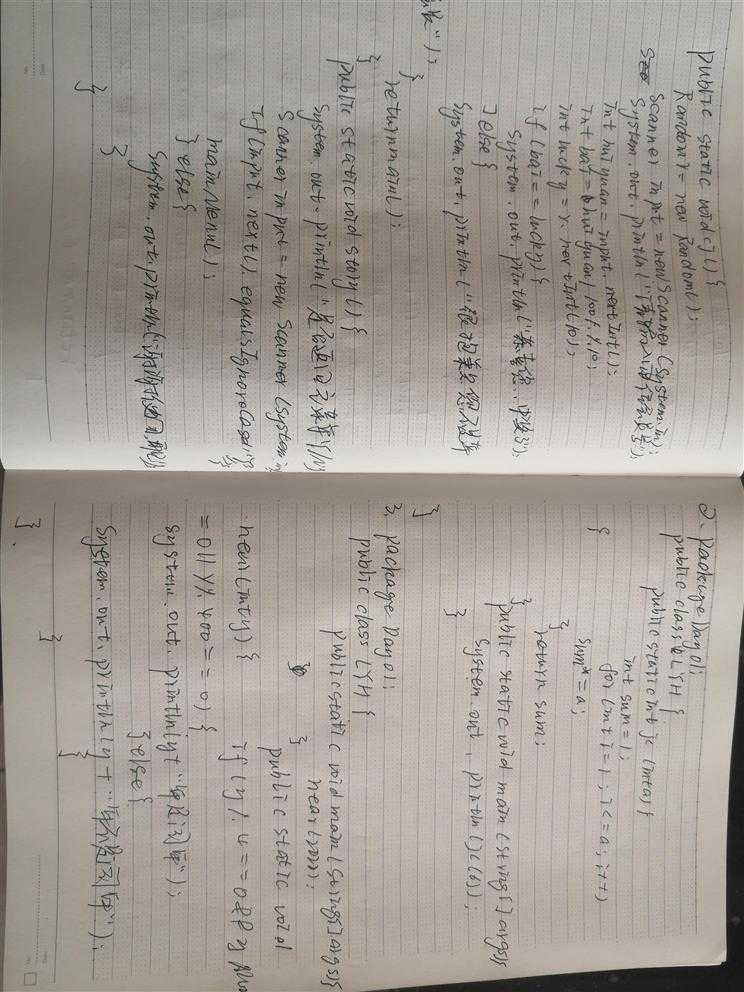 public static void cj() {
Random r = new Random();
Scanner input = new Scanner (System.in);
System.out.println("请输入
int huiyuan = input.nextInt();
int bai = huiyuan / 100 % 10;
int lucky = r.nextInt(10);
if (bai == lucky) {
System.out.println("恭喜您,中奖了");
} else {
System.out.println("很抱歉,您没中
");
}
return main();
}
public static void story() {
System.out.println("是否返回主菜单(Y/N)
Scanner input = new Scanner (System.in
If (input.next().equalsIgnoreCase("y
mainMenu();
} else {
System.out.println(
}
}
2. package Day01;
public class LJH {
public static int jc (int a) {
int sum = 1;
for (int i = 1; i <= a; i++)
{
sum* = a;
}
return sum;
}
public static void main (String[] args)
System.out.println(jc(6));
}
}
3. package Day01;
public class LJH {
public static void main (String[] args) {
near(2000);
}
public static void
near(int y) {
if (y % 4 == 0 && y %
= 0 || y % 400 == 0) {
System.out.println(y + "年是闰年");
} else {
System.out.println(y + "年不是闰年");
}
}
}